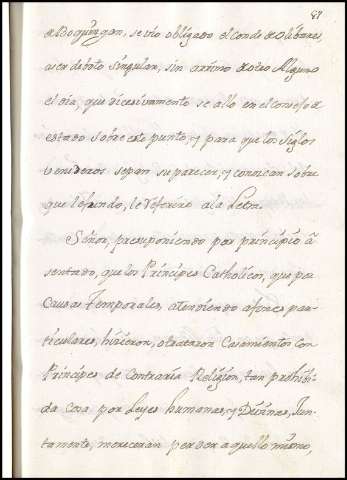 81
se vio obligado el conde de olibares,
a ser de boto singular, sin arrimo de otro Alguno
el dia, que dicesivamente se allo en el consejo de
estado sobre este punto; y para que los Siglos
venideros sepan su parecer, y conoscan sobre
que lo fundo, le referire a la Letra.
Señor, presuponiendo por principio a
sentado, que los Principes Catholicos, que por
Causas Temporales, atendiendo afines par-
ticulares, hicieron, o trataron Casamientos con
Principes de Contraria Religion, tan prohibi-
da cosa por Leyes humanas, y Divinas, Jun-
tamente, mereceran perder aquello mismo,